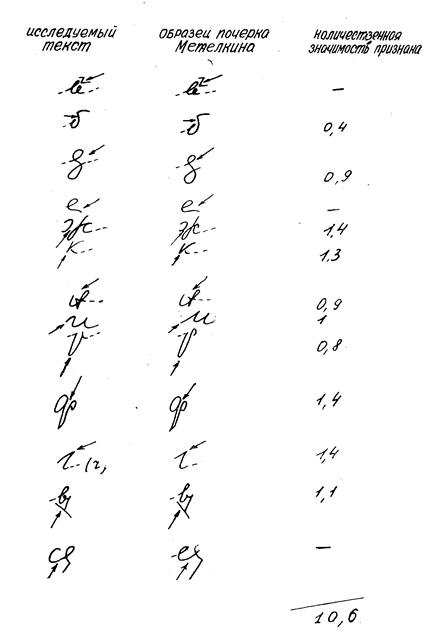 исследуемый текст образец почерка Метелкина количественная значимость признака
в в —
б б 0,4
д д 0,9
е е —
ж ж 1,4
к к 1,3
0,9
и и 1
р р 0,8
ф ф 1,4
ч (ч) ч 1,4
ву ву 1,1
ся ся —
10,6